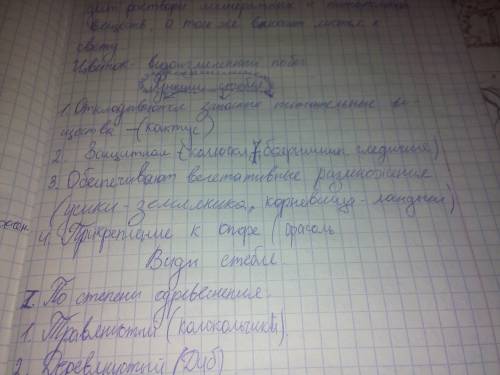 дит раствори минеральных и питательных
веществ, а так же выносит листья к
свету.
Цветок - видоизмененный побег.
Функции
1. Откладываются запасные питательные ве-
щества - (кактус)
2. Защитная (колючки, боярышник гледичия)
3. Обеспечивают вегетативные размножение
(усики - земляника, корневища - ландыш)
4. Прикрепление к опоре (фасоль
Виды стебля.
I. По степени одревеснения.
1. Травянистый (колокольчики).
2. Деревянистый (Дуб)